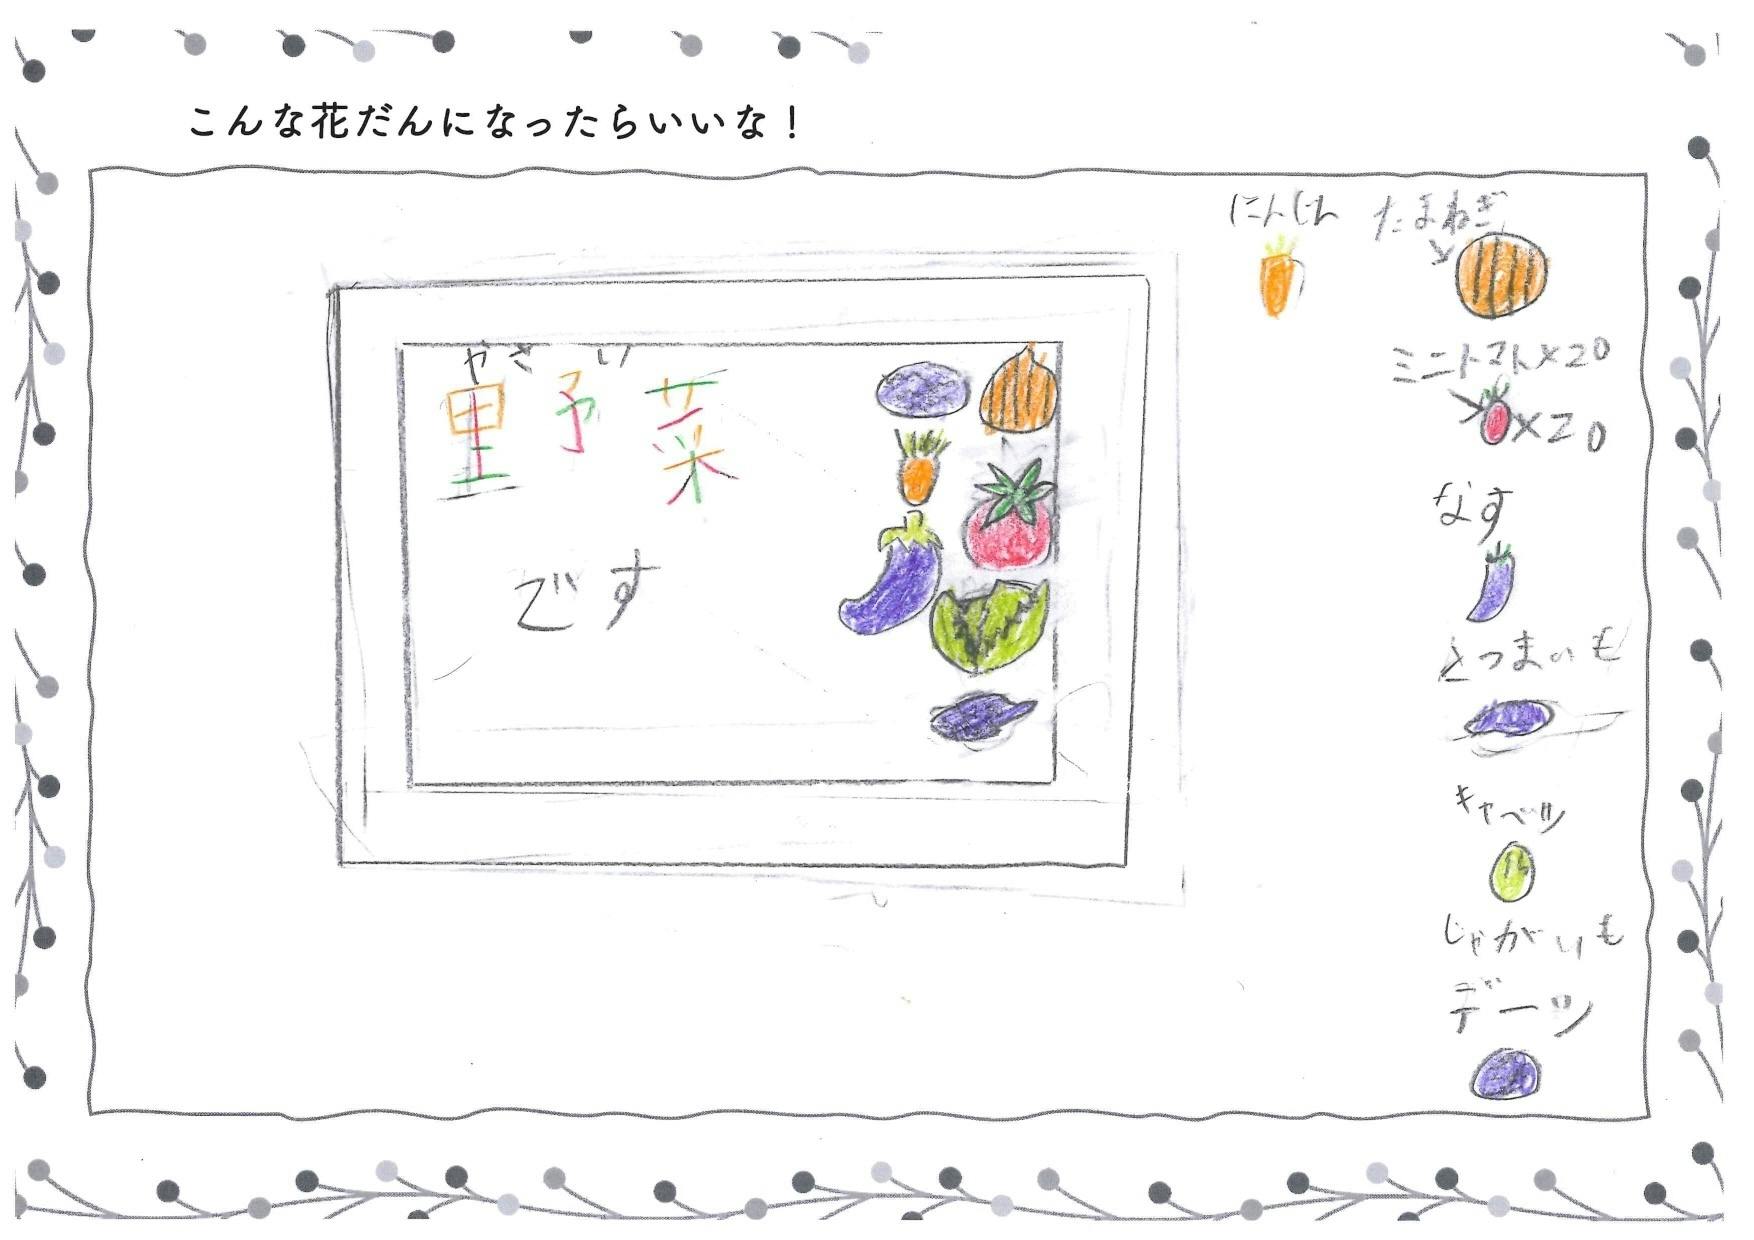 こんな花だんになったらいいな！
にんじん
たまねぎ
ミニトマト×20
×20
なす
さつまいも
キャベツ
じゃがいも
デーツ
やさい
野菜
です